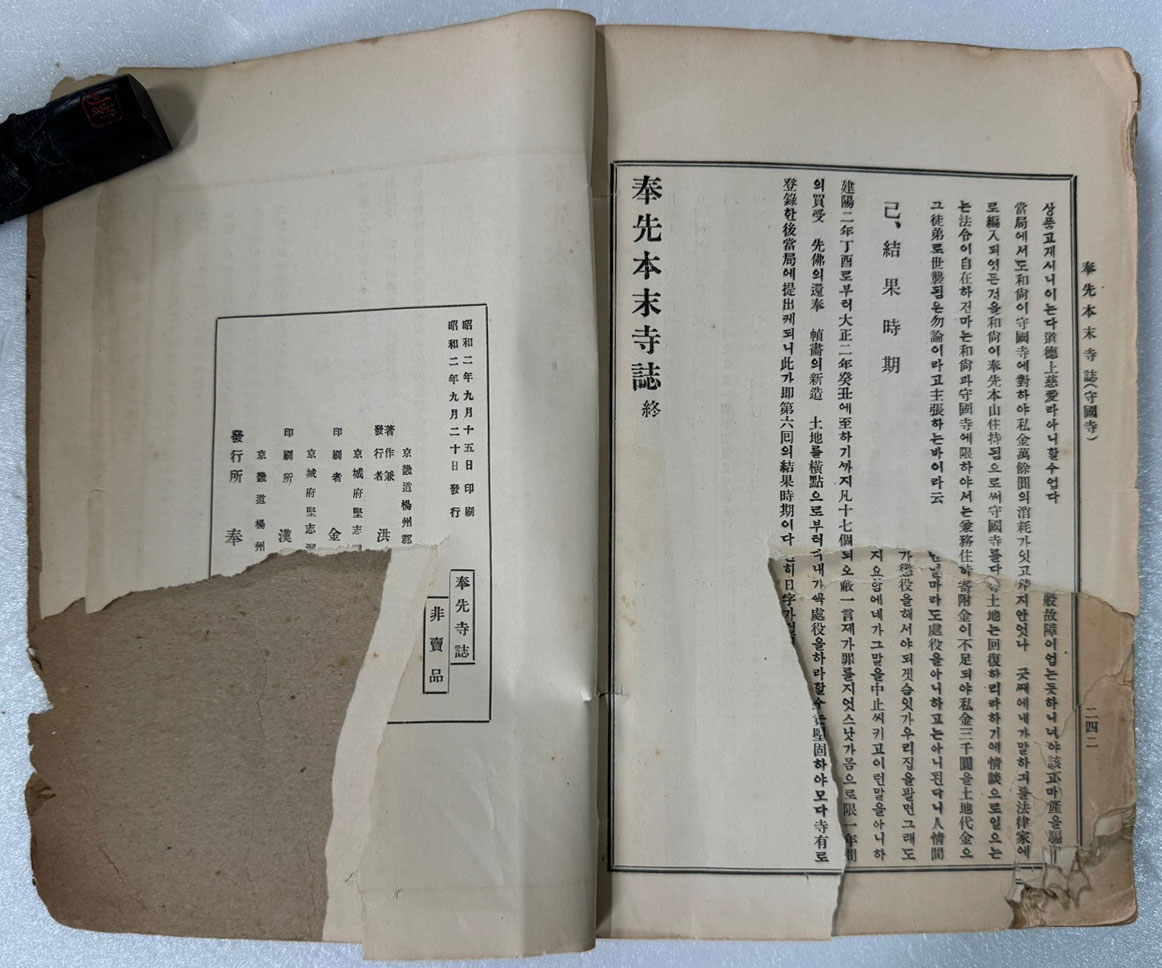 奉先本末寺誌(守國寺)
二四二
상품고재시니이는다道德上慈愛라아니할수업다
當局에서도和尙이守國寺에對하야私金萬餘圓의消耗가잇고
로編入되엿든것을和尙이奉先本山住持됨으로써守國寺를다
는法令이自在하건마는和尙과守國寺에限하야서는兼務住持
그徒弟로世襲됨은勿論이라고主張하는바이라云
般故障이업는듯하니
지안엇나 긋째에내가말하귀를法律家에
土地는回復하리라하기에情談으로일으는
寄附金이不足되야私金三千圓을土地代金으
마라도處役을아니하고는아니된다니人情間
가懲役을해서야되겟슴잇가우리집을팔면그래도
지요함에네가그말을中止씨키고이런말을아니하
己、結果時期
建陽二年丁酉로부터大正二年癸丑에至하기까지凡十七個
되오敝一言제가罪를지엇스낫가몸으로限一年間
의買受 先佛의還奉 幀畵의新造 土地를橫點으로부터
處役을하라할수
堅固하야모다寺有로
登錄한後當局에提出케되니此가卽第六回의結果時期이다
히日字가
奉先本末寺誌 終
昭和二年九月十五日印刷
昭和二年九月二十日發行
京畿道楊州郡
著作兼發行者 洪
京城府堅志洞
印刷者 金
京城府堅志洞
印刷所 漢
京畿道楊州
發行所 奉
奉先寺誌
非賣品